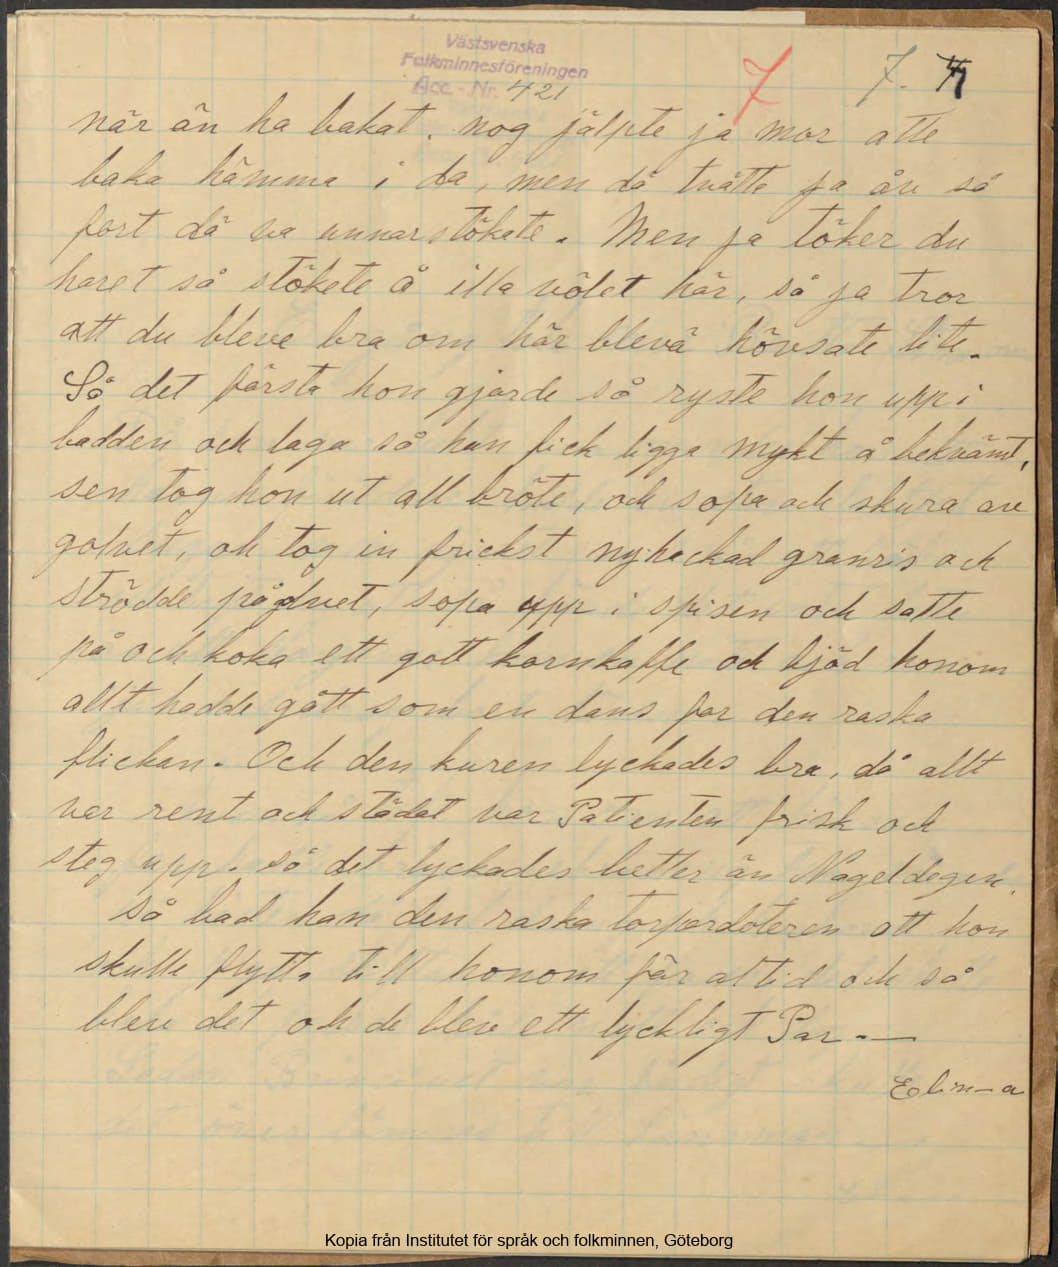 Västsvenska
Folkminnesföreningen
Acc. - Nr. 421
7
7.
när än ha bakat. nog jälpte ja mor atte
baka hämma i da, men då tvätte ja åv så
fort då va unnarstökate. Men ja töker du
haret så stökete å illa völet här, så ja tror
att du bleve bra om här blevä hövsate lite.
Så det färsta hon gjorde så ryste hon upp i
badden och laga så han fick ligga mykt å bekvämt,
sen tog hon ut all bröte, och sopa och skura av
golvet, ok tog in frickst nyhackad granris och
strödde pågolvet, sopa upp i spisen och satte
på och koka ett gott kornkaffe och bjöd honom
allt hadde gått som en dans for den raska
flickan. Och den kuren lyckades bra, då allt
var rent och städat var Patienten frisk och
steg upp. så det lyckades better än Nageldegen.
så bad han den raska torpardoteren att hon
skulle flytta till honom får altid och så
blev det ok de blev ett lyckligt Par. —
Kopia från Institutet för språk och folkminnen, Göteborg